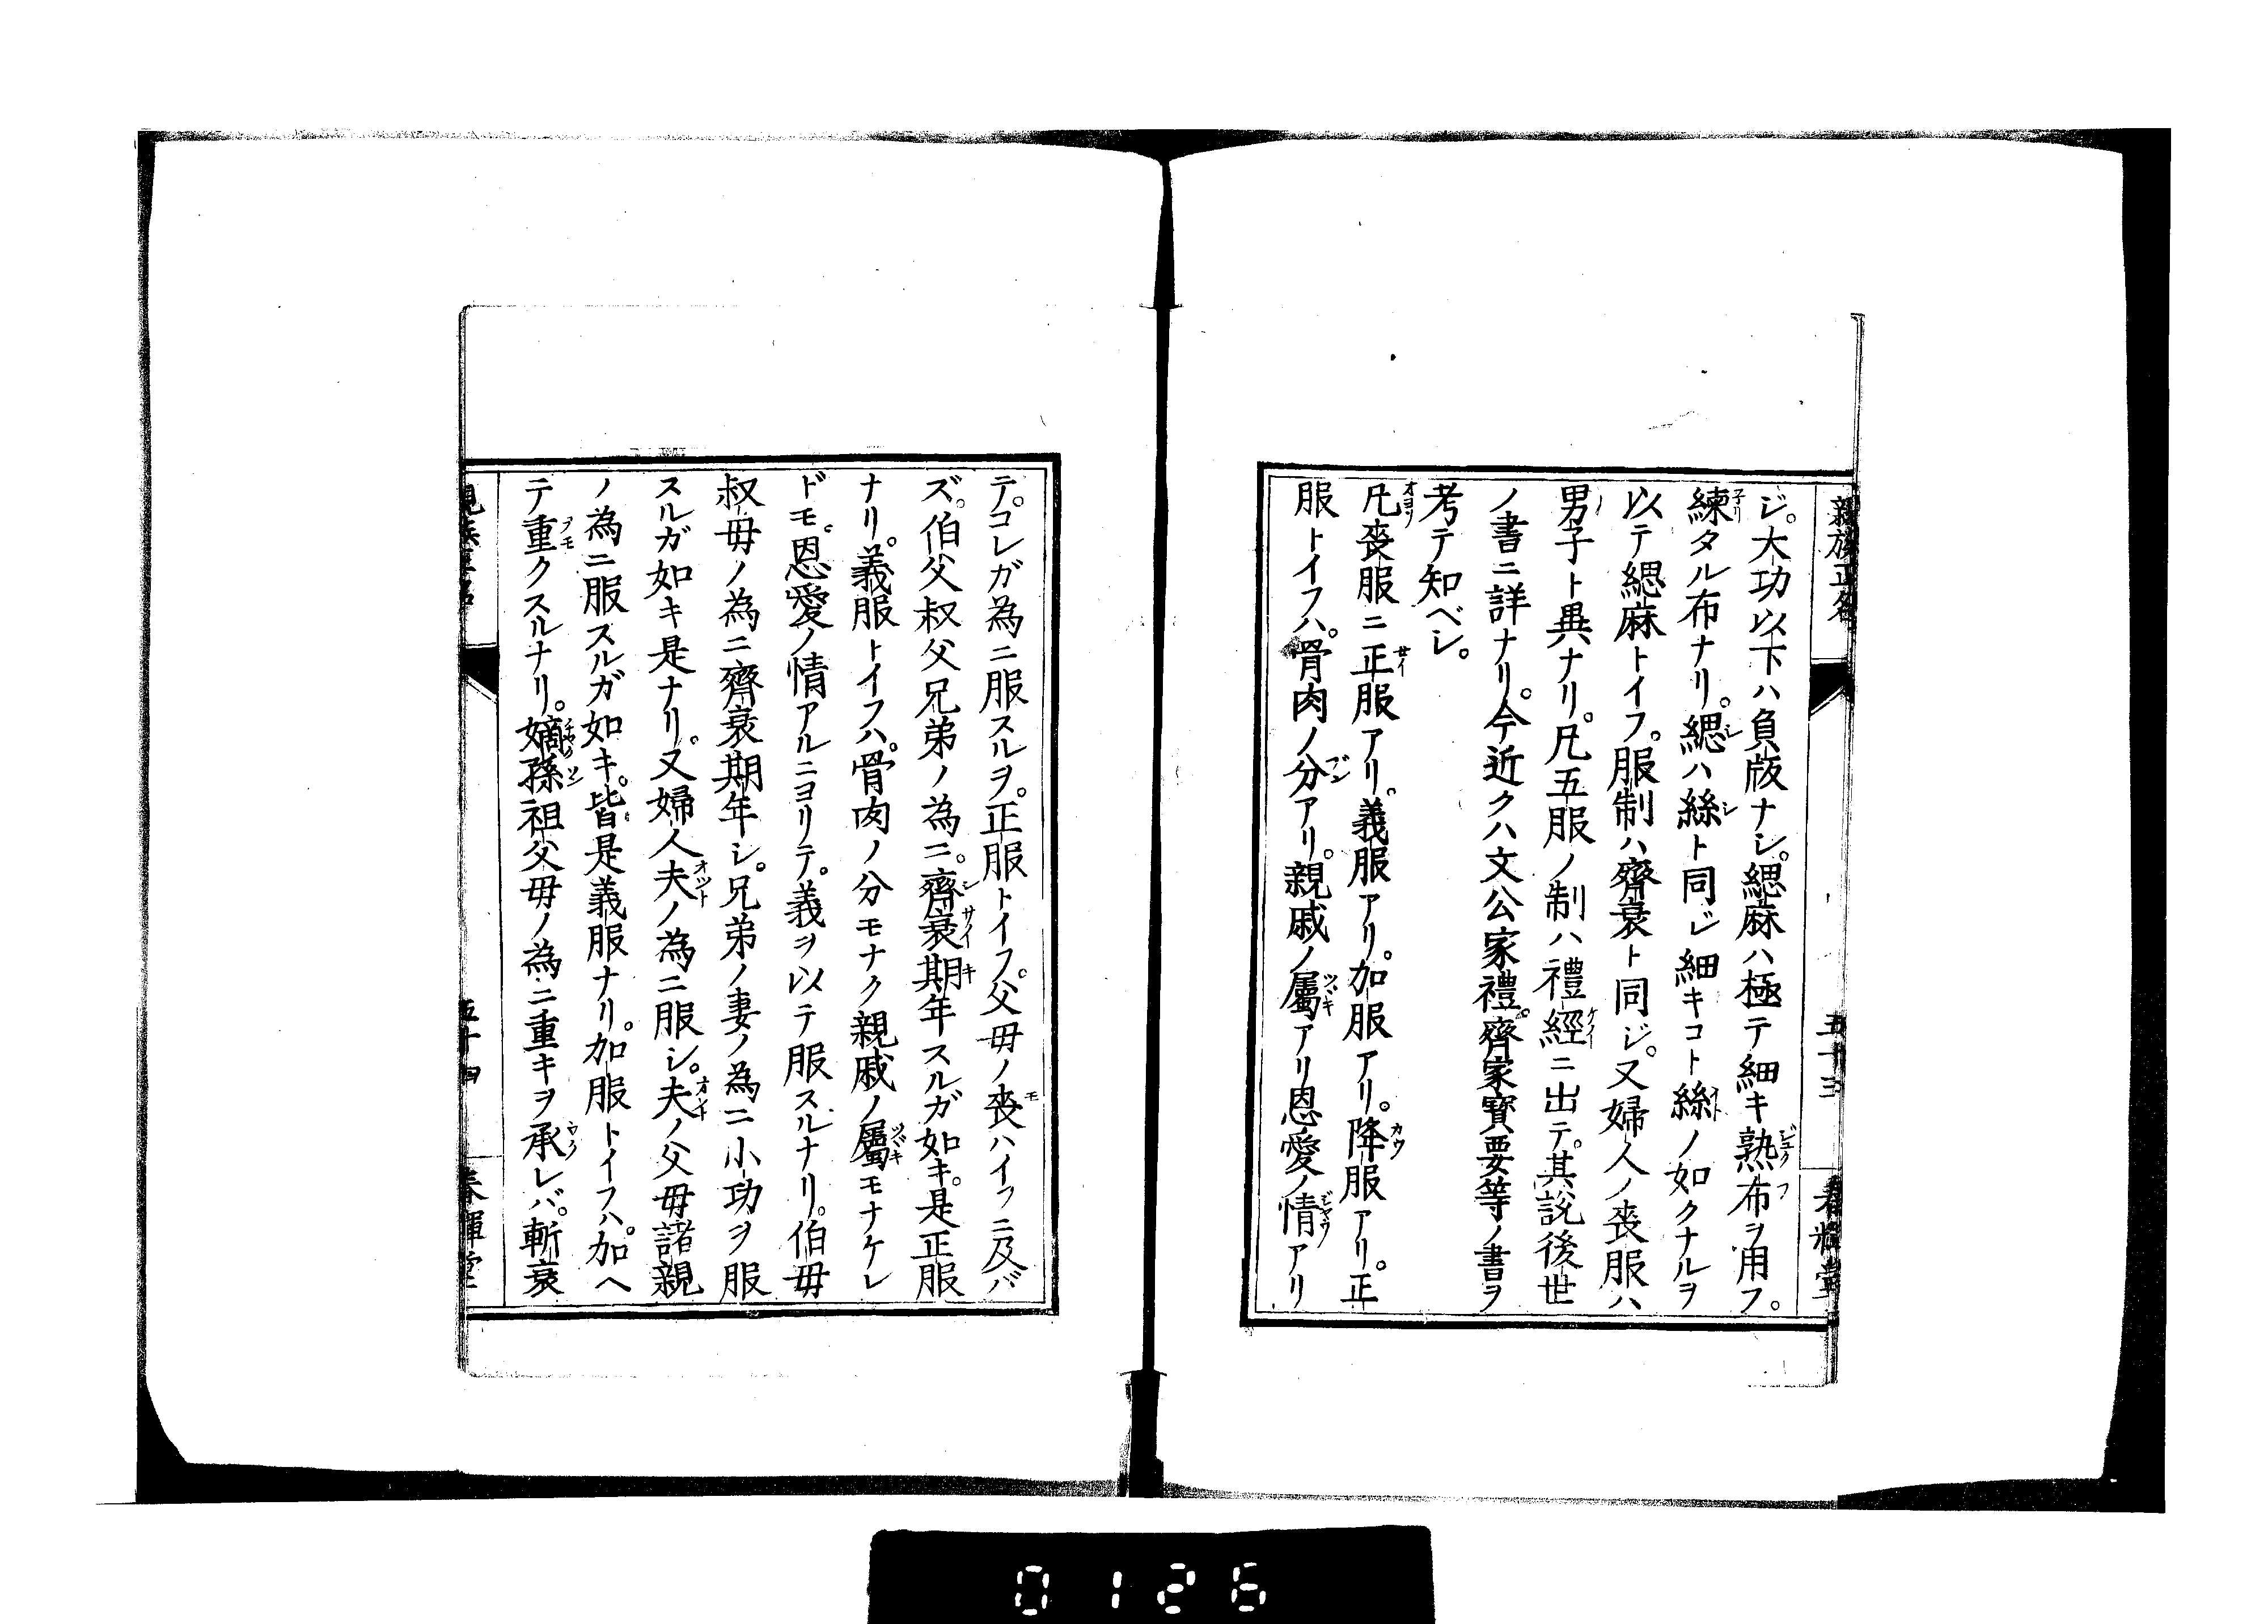 親族正名
五十三
春輝堂
ジ。大功以下ハ負版ナシ。緦麻ハ極テ細キ熟布ヲ用フ。
練タル布ナリ。緦ハ絲ト同ジ細キコト絲ノ如クナルヲ
以テ緦麻トイフ。服制ハ齊衰ト同ジ。又婦人ノ喪服ハ
男子ト異ナリ。凡五服ノ制ハ禮經ニ出テ。其説後世
ノ書ニ詳ナリ。今近クハ文公家禮。齊家寳要等ノ書ヲ
考テ知ベシ。
凡喪服ニ正服アリ。義服アリ。加服アリ。降服アリ。正
服トイフハ。骨肉ノ分アリ。親戚ノ屬アリ恩愛ノ情アリ
テ。コレガ為ニ服スルヲ。正服トイフ。父母ノ喪ハイフニ及バ
ズ。伯父叔父兄弟ノ為ニ。齊衰期年スルガ如キ。是正服
ナリ。義服トイフハ。骨肉ノ分モナク親戚ノ屬モナケレ
ドモ。恩愛ノ情アルニヨリテ。義ヲ以テ服スルナリ。伯母
叔母ノ為ニ齊衰期年シ。兄弟ノ妻ノ為ニ小功ヲ服
スルガ如キ是ナリ。又婦人夫ノ為ニ服シ。夫ノ父母諸親
ノ為ニ服スルガ如キ。皆是義服ナリ。加服トイフハ。加ヘ
テ重クスルナリ。嫡孫祖父母ノ為ニ重キヲ承レバ。斬衰
親族正名
五十四
春輝堂
0126